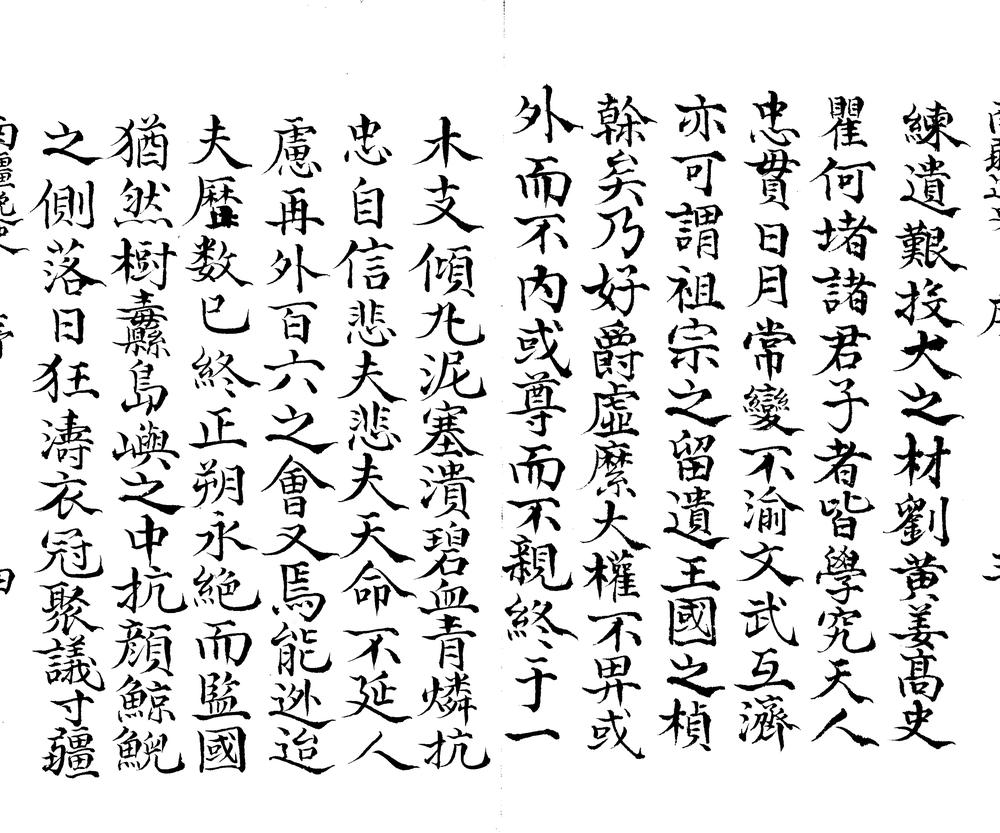 練遺艱投大之材劉黄姜高史
瞿何堵諸君子者皆學究天人
忠貫日月常變不渝文武互濟
亦可謂祖宗之留遺王國之楨
榦矣乃好爵虛縻大權不畀或
外而不内或尊而不親終于一
木支傾丸泥塞潰碧血青燐抗
忠自信悲夫悲夫天命不延人
慮再外百六之會又焉能逃迨
夫曆数已終正朔永絶而監國
猶然樹纛縣島嶼之中抗顔鯨鯢
之側落日狂濤衣冠聚議寸疆